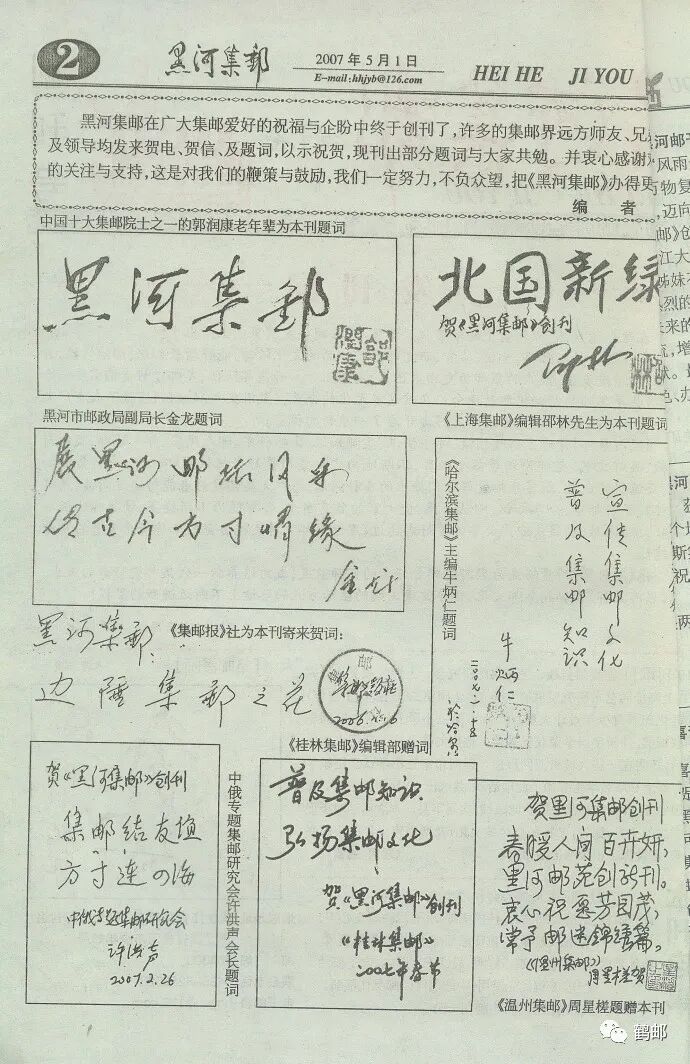 2
黑河集邮
2007年5月1日
E-mail:hhjyb@126.com
HEI HE JI YOU
黑河集邮在广大集邮爱好的祝福与企盼中终于创刊了，许多的集邮界远方师友、兄
及领导均发来贺电、贺信、及题词，以示祝贺，现刊出部分题词与大家共勉。并衷心感谢
的关注与支持，这是对我们的鞭策与鼓励，我们一定努力，不负众望，把《黑河集邮》办得更
编 者
中国十大集邮院士之一的郭润康老年辈为本刊题词
黑河集邮
北国新绿
贺《黑河集邮》创刊
邵林
黑河市邮政局副局长金龙题词
《上海集邮》编辑邵林先生为本刊题词
展黑河邮坛风采
古今方寸缘
金龙
《哈尔滨集邮》主编牛炳仁题词
宣传集邮文化
普及集邮知识
牛炳仁
黑河集邮：
《集邮报》社为本刊寄来贺词：
边陲集邮之花
集邮报社
贺《黑河集邮》创刊
集邮结友谊
方寸连四海
中俄专题集邮研究会
许洪声
2007.2.26
中俄专题集邮研究会许洪声会长题词
《桂林集邮》编辑部赠词
普及集邮知识
弘扬集邮文化
贺《黑河集邮》创刊
《桂林集邮》
2007年春节
贺黑河集邮创刊
春暖人间百卉妍，
黑河邮苑创新刊。
衷心祝愿芳园茂，
常予邮迷锦绣篇。
《温州集邮》
周星槎贺
《温州集邮》周星槎题赠本刊
鹤邮